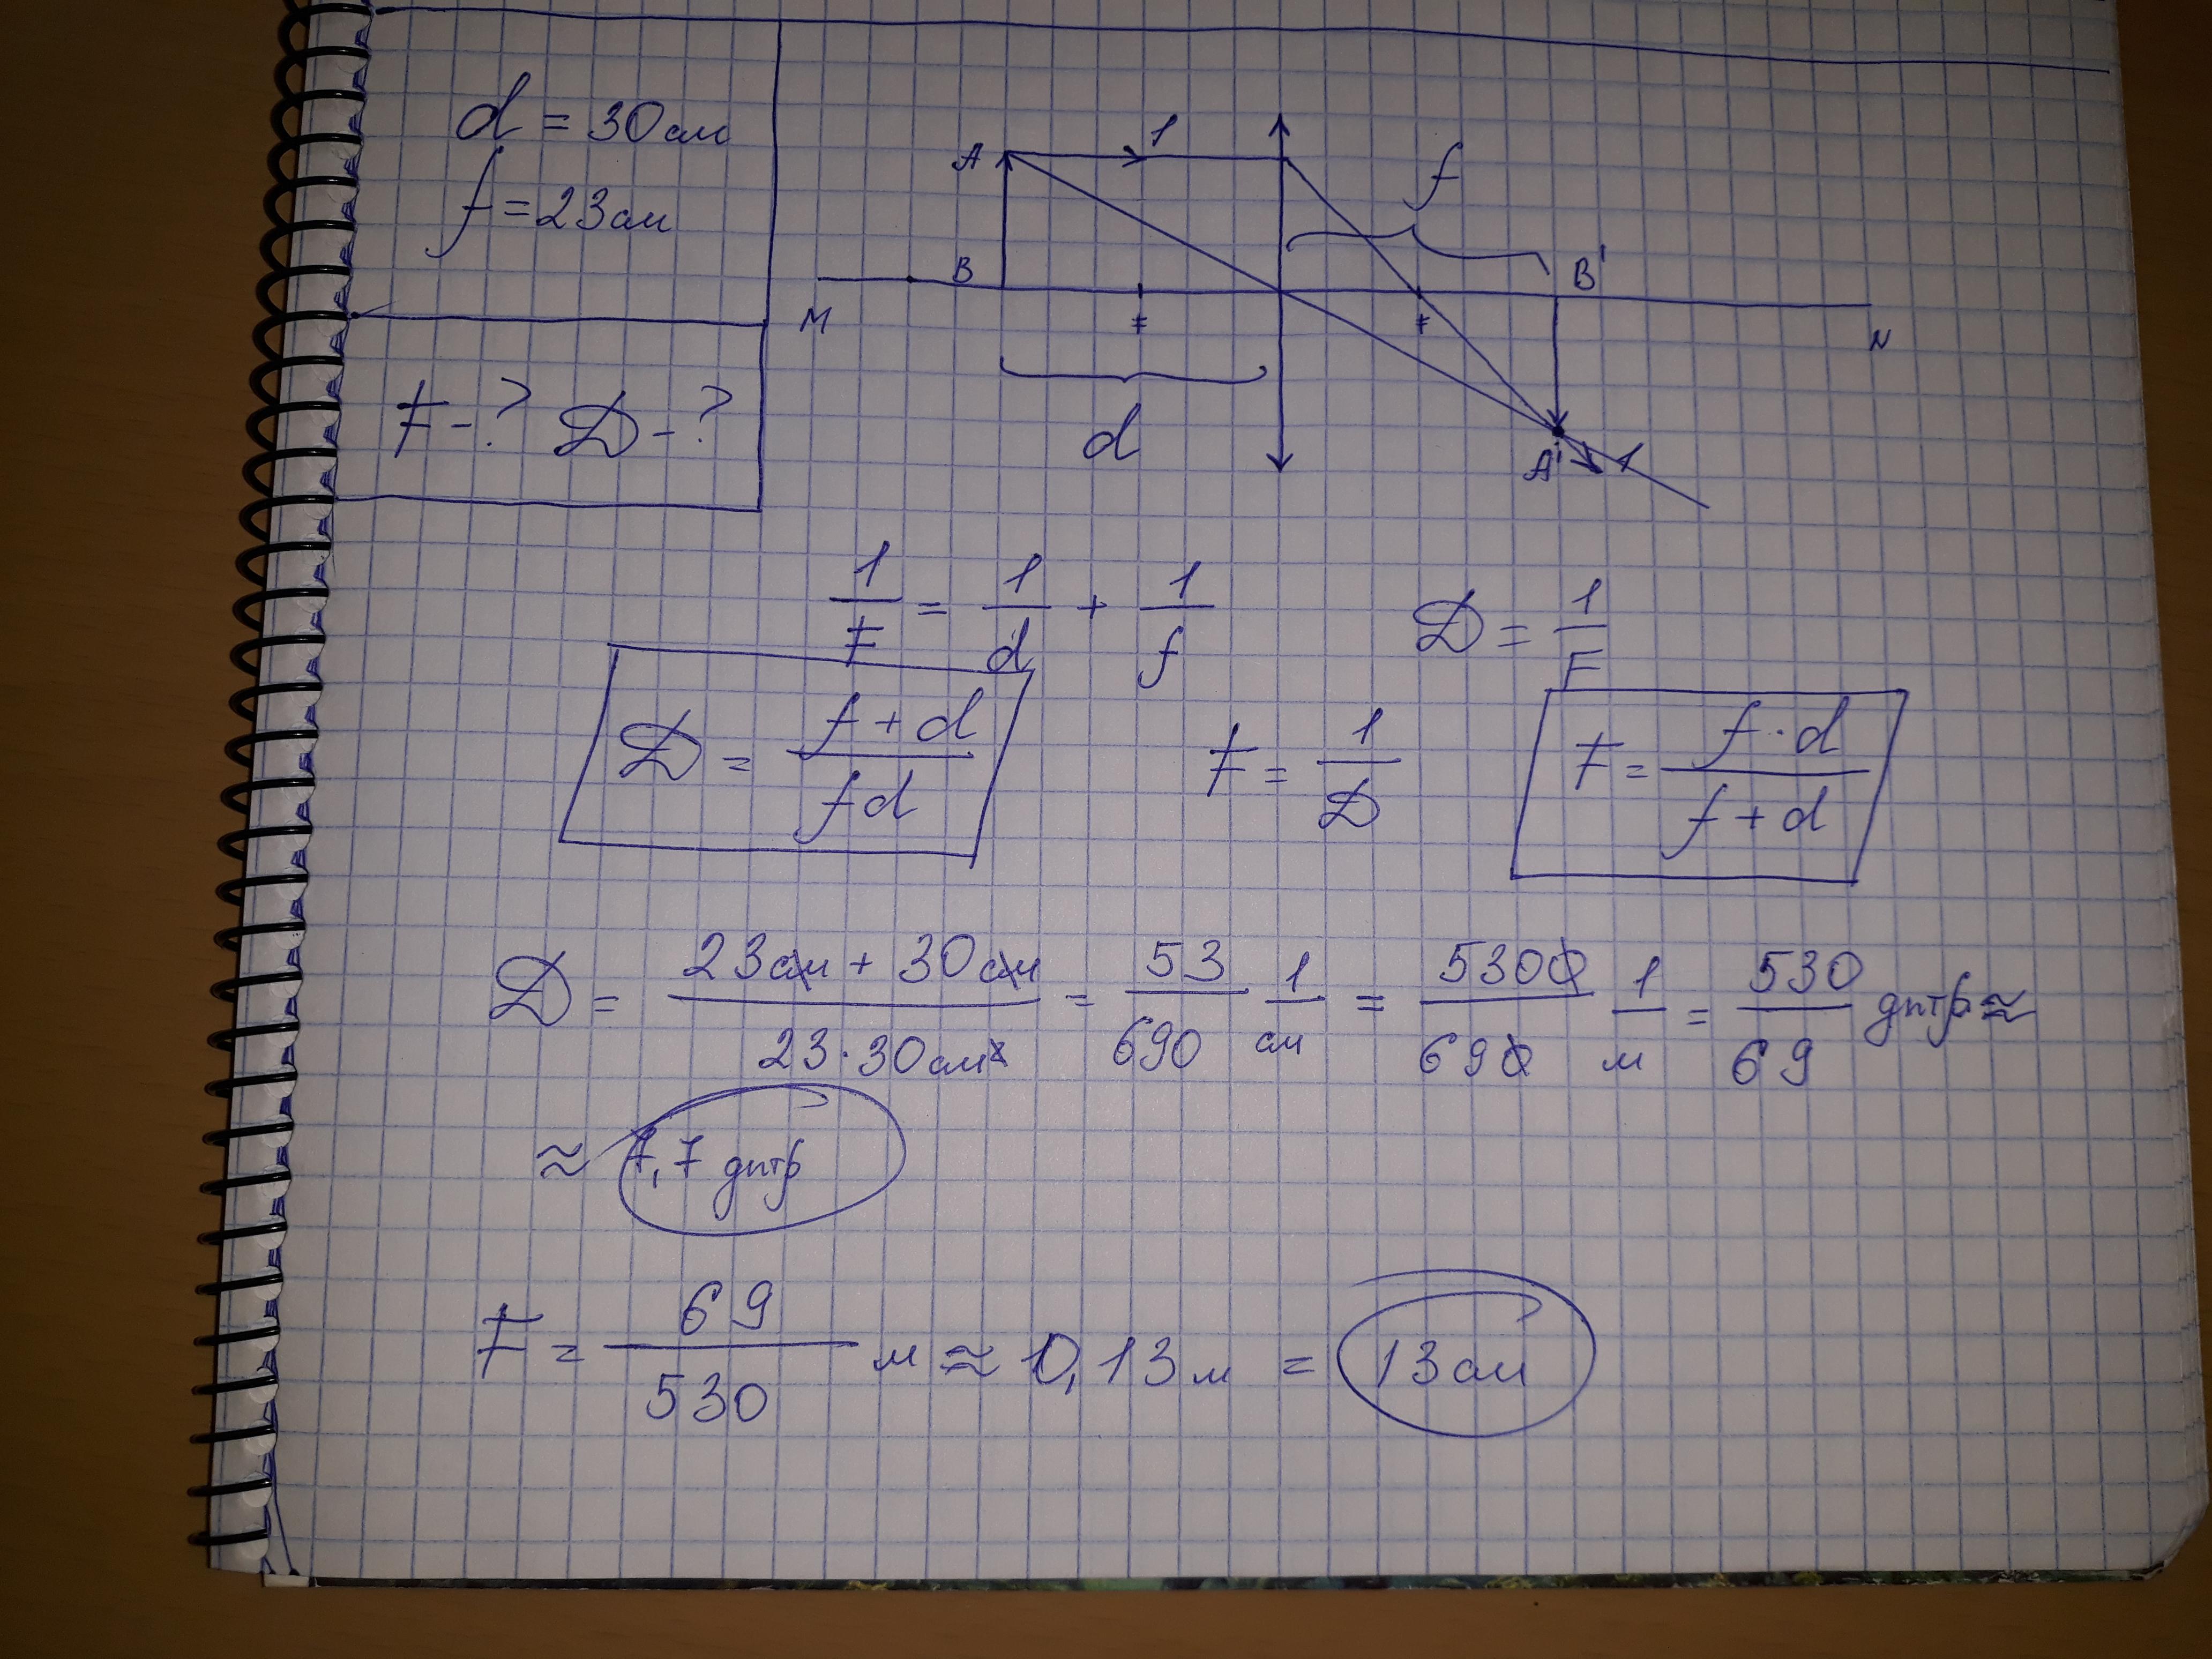 d = 30 см
f = 23 см
F - ? D - ?
A 1 f
B B'
M F F N
d A' 1
1/F = 1/d + 1/f D = 1/F
D = (f + d)/(fd) F = 1/D F = (f · d)/(f + d)
D = (23 см + 30 см)/(23 · 30 см²) = 53/690 1/см = 5300/690 1/м = 530/69 дптр ≈
≈ 7,7 дптр
F = 69/530 м ≈ 0,13 м = 13 см